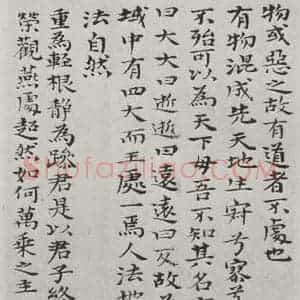 物或惡之故有道者不處也
有物混成先天地生寂兮寥
不殆可以為天下母吾不知其名
曰大大曰逝逝曰遠遠曰反故
域中有四大而王處一焉人法地
法自然
重為輕根静為躁君是以君子終
榮觀燕處超然如何萬乘之主